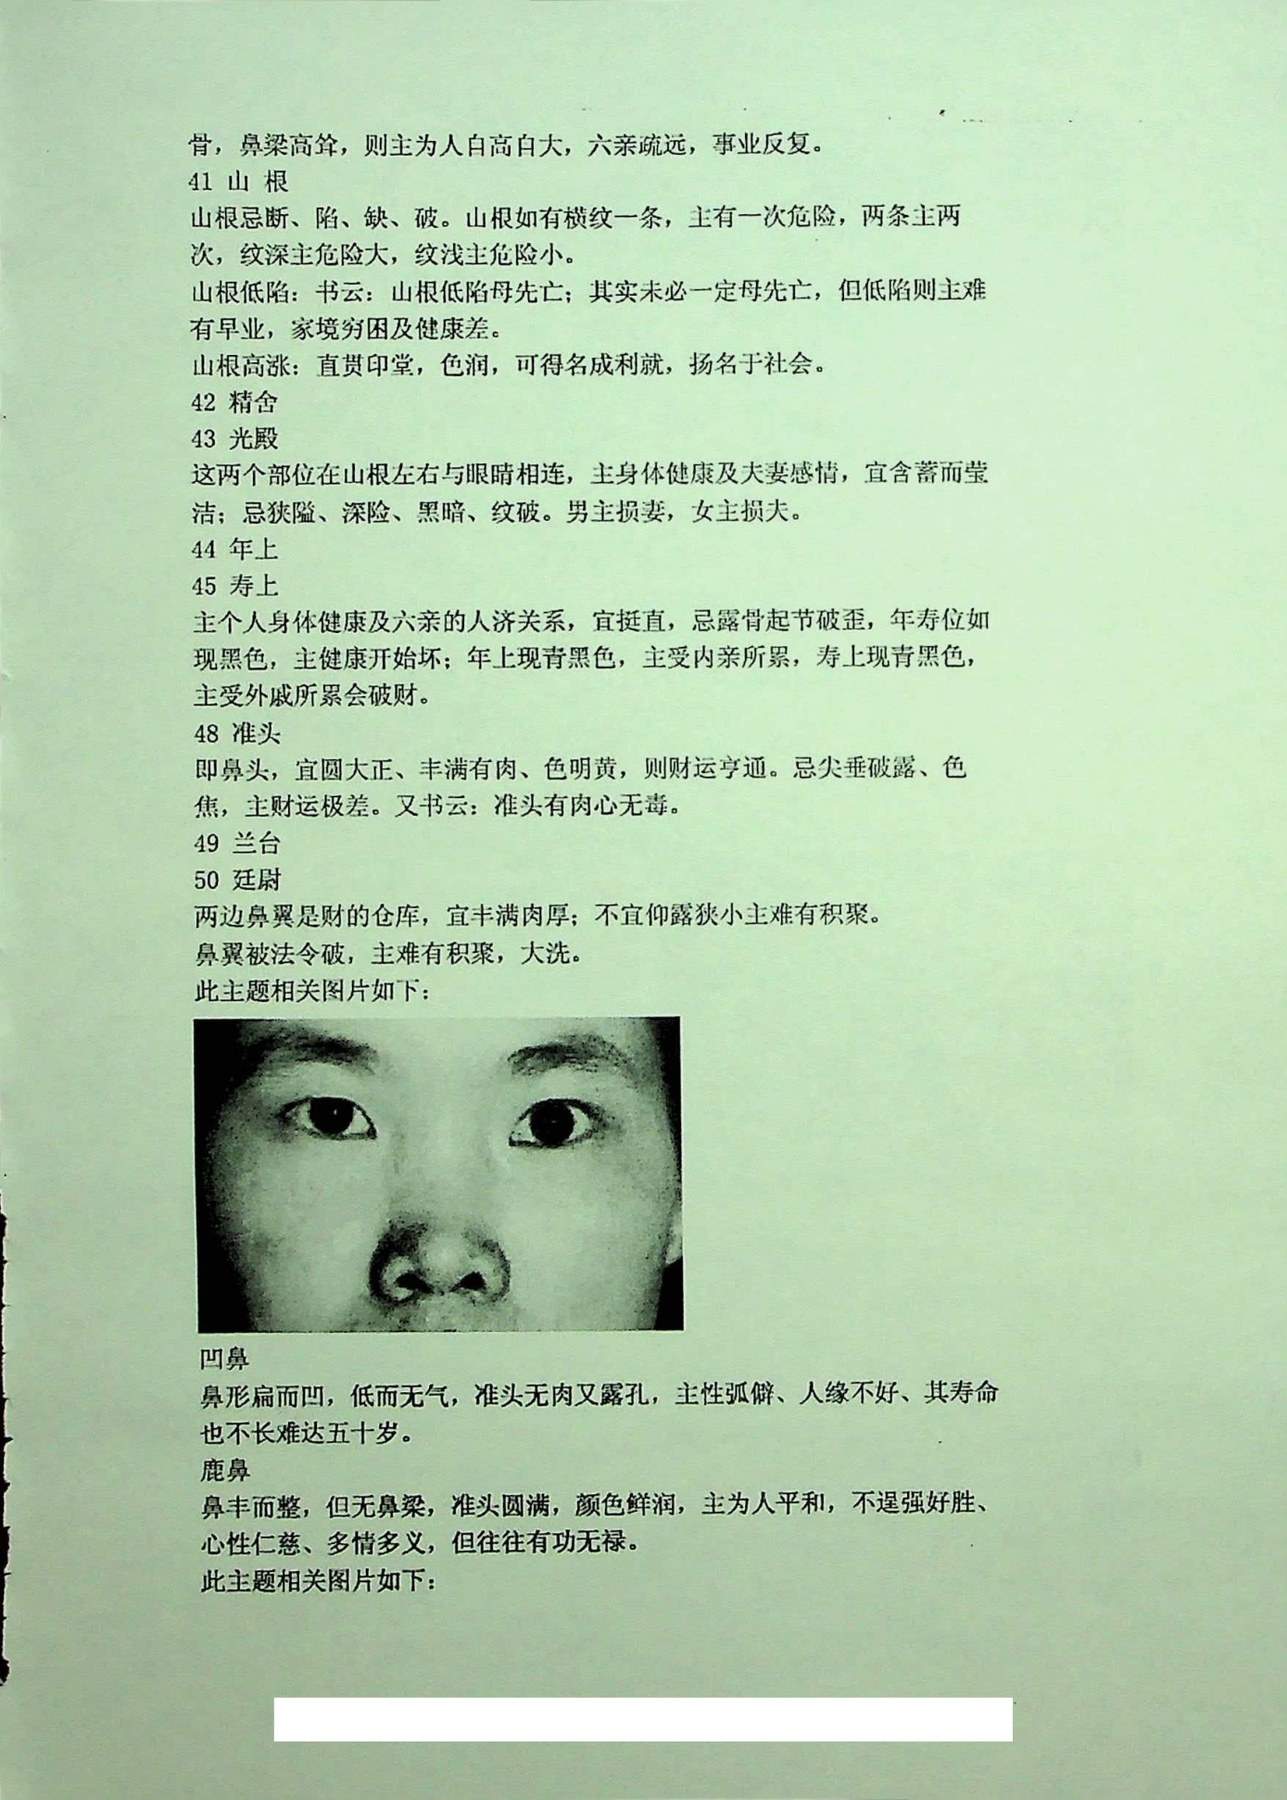 骨，鼻梁高耸，则主为人自高自大，六亲疏远，事业反复。
41 山 根
山根忌断、陷、缺、破。山根如有横纹一条，主有一次危险，两条主两
次，纹深主危险大，纹浅主危险小。
山根低陷：书云：山根低陷母先亡；其实未必一定母先亡，但低陷则主难
有早业，家境穷困及健康差。
山根高涨：直贯印堂，色润，可得名成利就，扬名于社会。
42 精舍
43 光殿
这两个部位在山根左右与眼睛相连，主身体健康及夫妻感情，宜含蓄而莹
洁；忌狭隘、深险、黑暗、纹破。男主损妻，女主损夫。
44 年上
45 寿上
主个人身体健康及六亲的人济关系，宜挺直，忌露骨起节破歪，年寿位如
现黑色，主健康开始坏；年上现青黑色，主受内亲所累，寿上现青黑色，
主受外戚所累会破财。
48 准头
即鼻头，宜圆大正、丰满有肉、色明黄，则财运亨通。忌尖垂破露、色
焦，主财运极差。又书云：准头有肉心无毒。
49 兰台
50 廷尉
两边鼻翼是财的仓库，宜丰满肉厚；不宜仰露狭小主难有积聚。
鼻翼被法令破，主难有积聚，大洗。
此主题相关图片如下：
凹鼻
鼻形扁而凹，低而无气，准头无肉又露孔，主性弧僻、人缘不好、其寿命
也不长难达五十岁。
鹿鼻
鼻丰而整，但无鼻梁，准头圆满，颜色鲜润，主为人平和，不逞强好胜、
心性仁慈、多情多义，但往往有功无禄。
此主题相关图片如下：